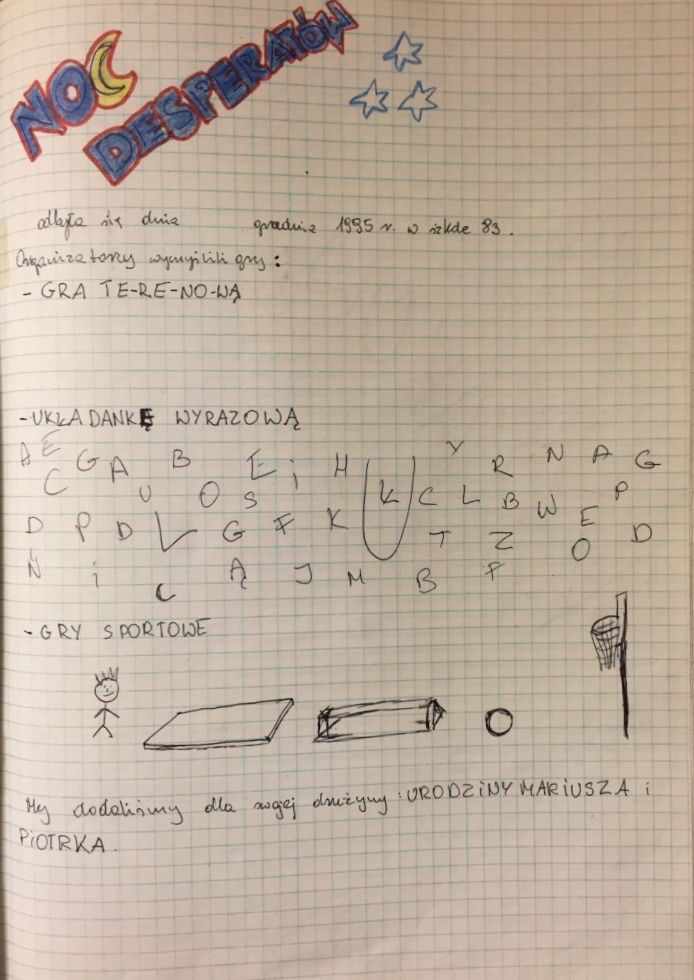 NOC
DESPERATÓW
odbyła się dnia grudnia 1995 r. w szkole 83.
Organizatorzy wymyślili gry:
- GRA TE-RE-NO-WĄ
- UKŁADANKĘ WYRAZOWĄ
A E C G A B E i H Y R N A G
U O S K C L B W E P
D P D L G F K T Z O D
N i C Ą J M B F
- GRY SPORTOWE
My dodaliśmy dla swojej drużyny: URODZiNY MARiUSZA i
PiOTRKA.